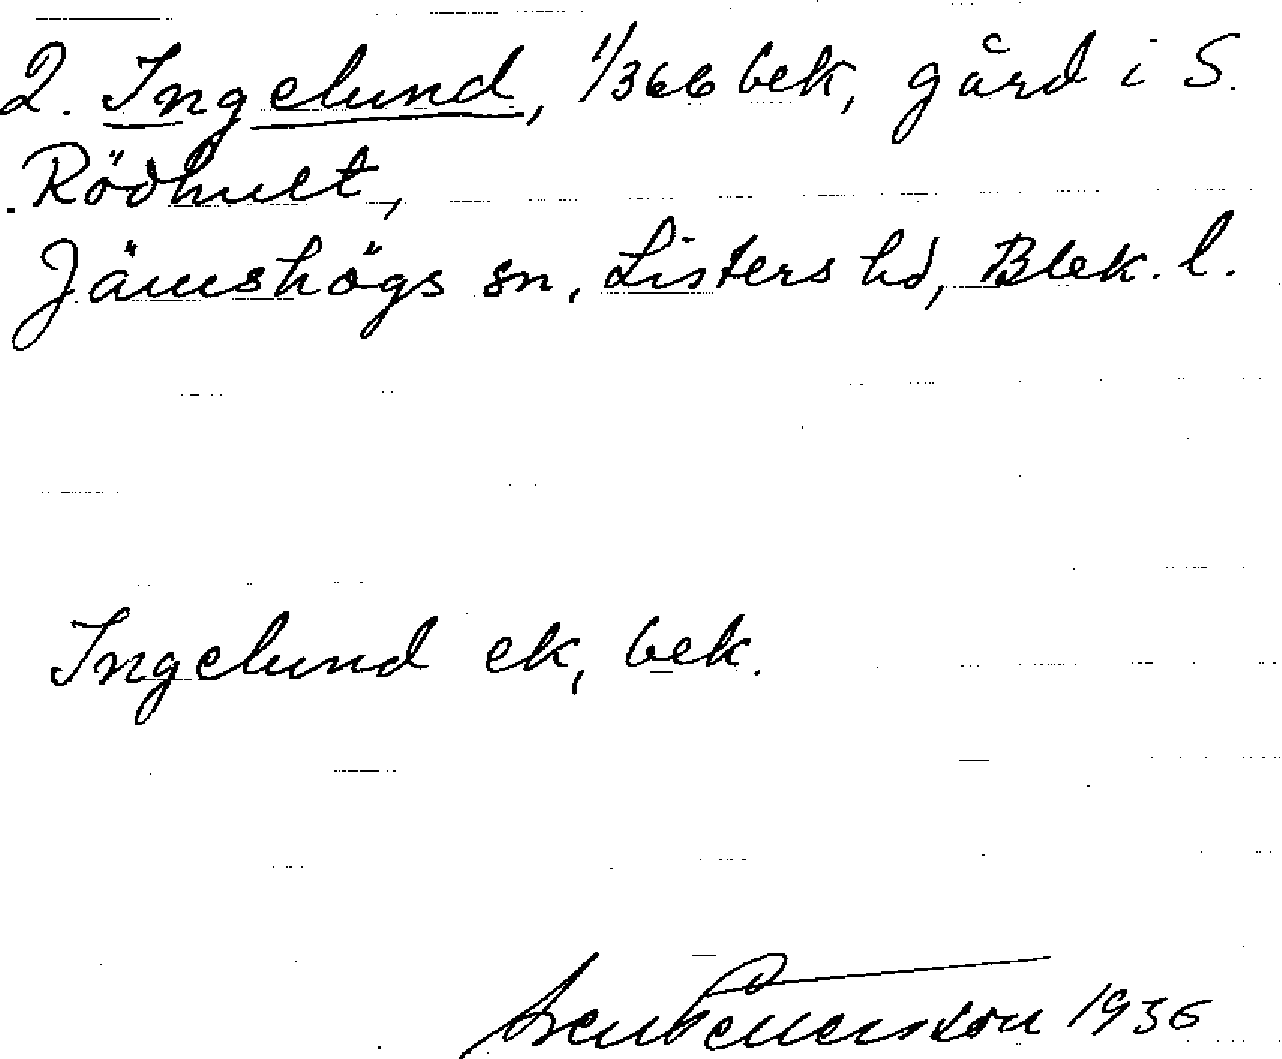 2. Ingelund, 1/366 bek, gård i S.
Rödhult,
Jämshögs sn, Listers hd, Blek. l.
Ingelund ek, bek.
1936